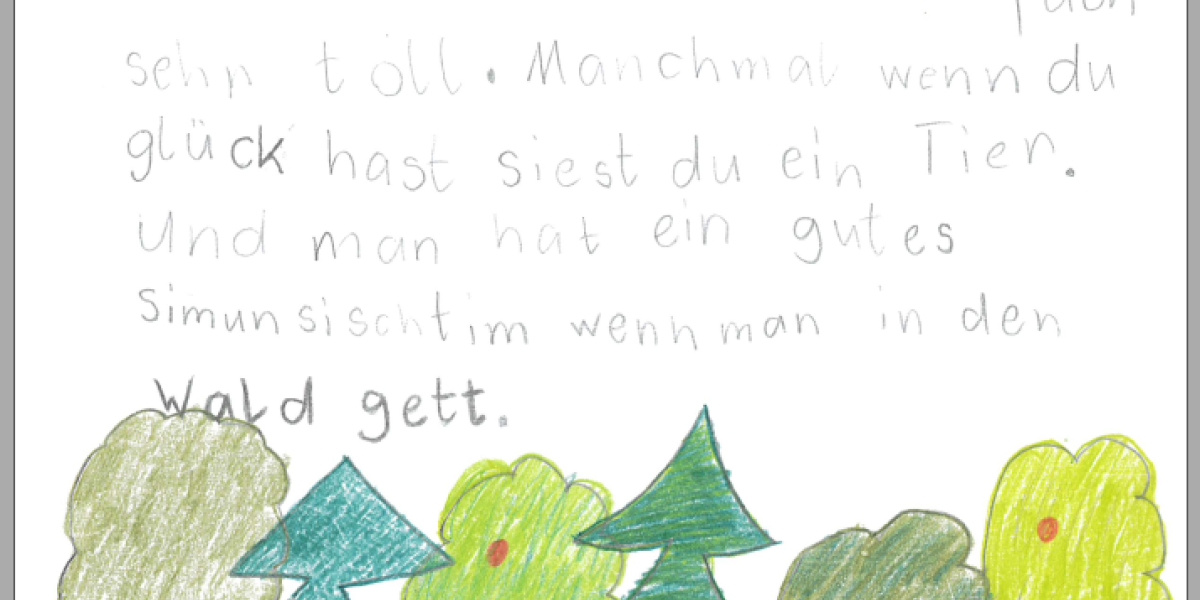 sehr toll. Manchmal wenn du
glück hast siest du ein Tier.
Und man hat ein gutes
Simunsischtim wenn man in den
Wald gett.